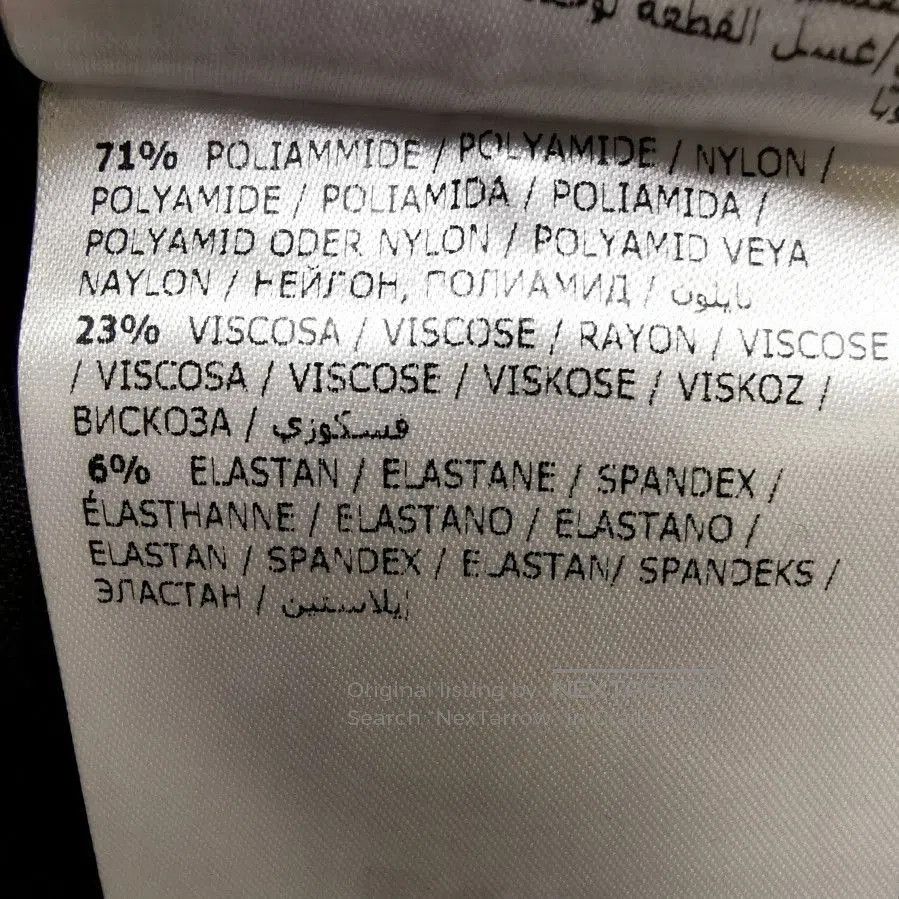 غسل القطعة
71% POLIAMMIDE / POLYAMIDE / NYLON /
POLYAMIDE / POLIAMIDA / POLIAMIDA /
POLYAMID ODER NYLON / POLYAMID VEYA
NAYLON / НЕЙЛОН, ПОЛИАМИД / نايلون
23% VISCOSA / VISCOSE / RAYON / VISCOSE
/ VISCOSA / VISCOSE / VISKOSE / VISKOZ /
ВИСКОЗА / فسكوزي
6% ELASTAN / ELASTANE / SPANDEX /
ÉLASTHANNE / ELASTANO / ELASTANO /
ELASTAN / SPANDEX / ELASTAN/ SPANDEKS /
ЭЛАСТАН / إيلاستين
Original listing by NEXTARROW
Search "NexTarrow" in